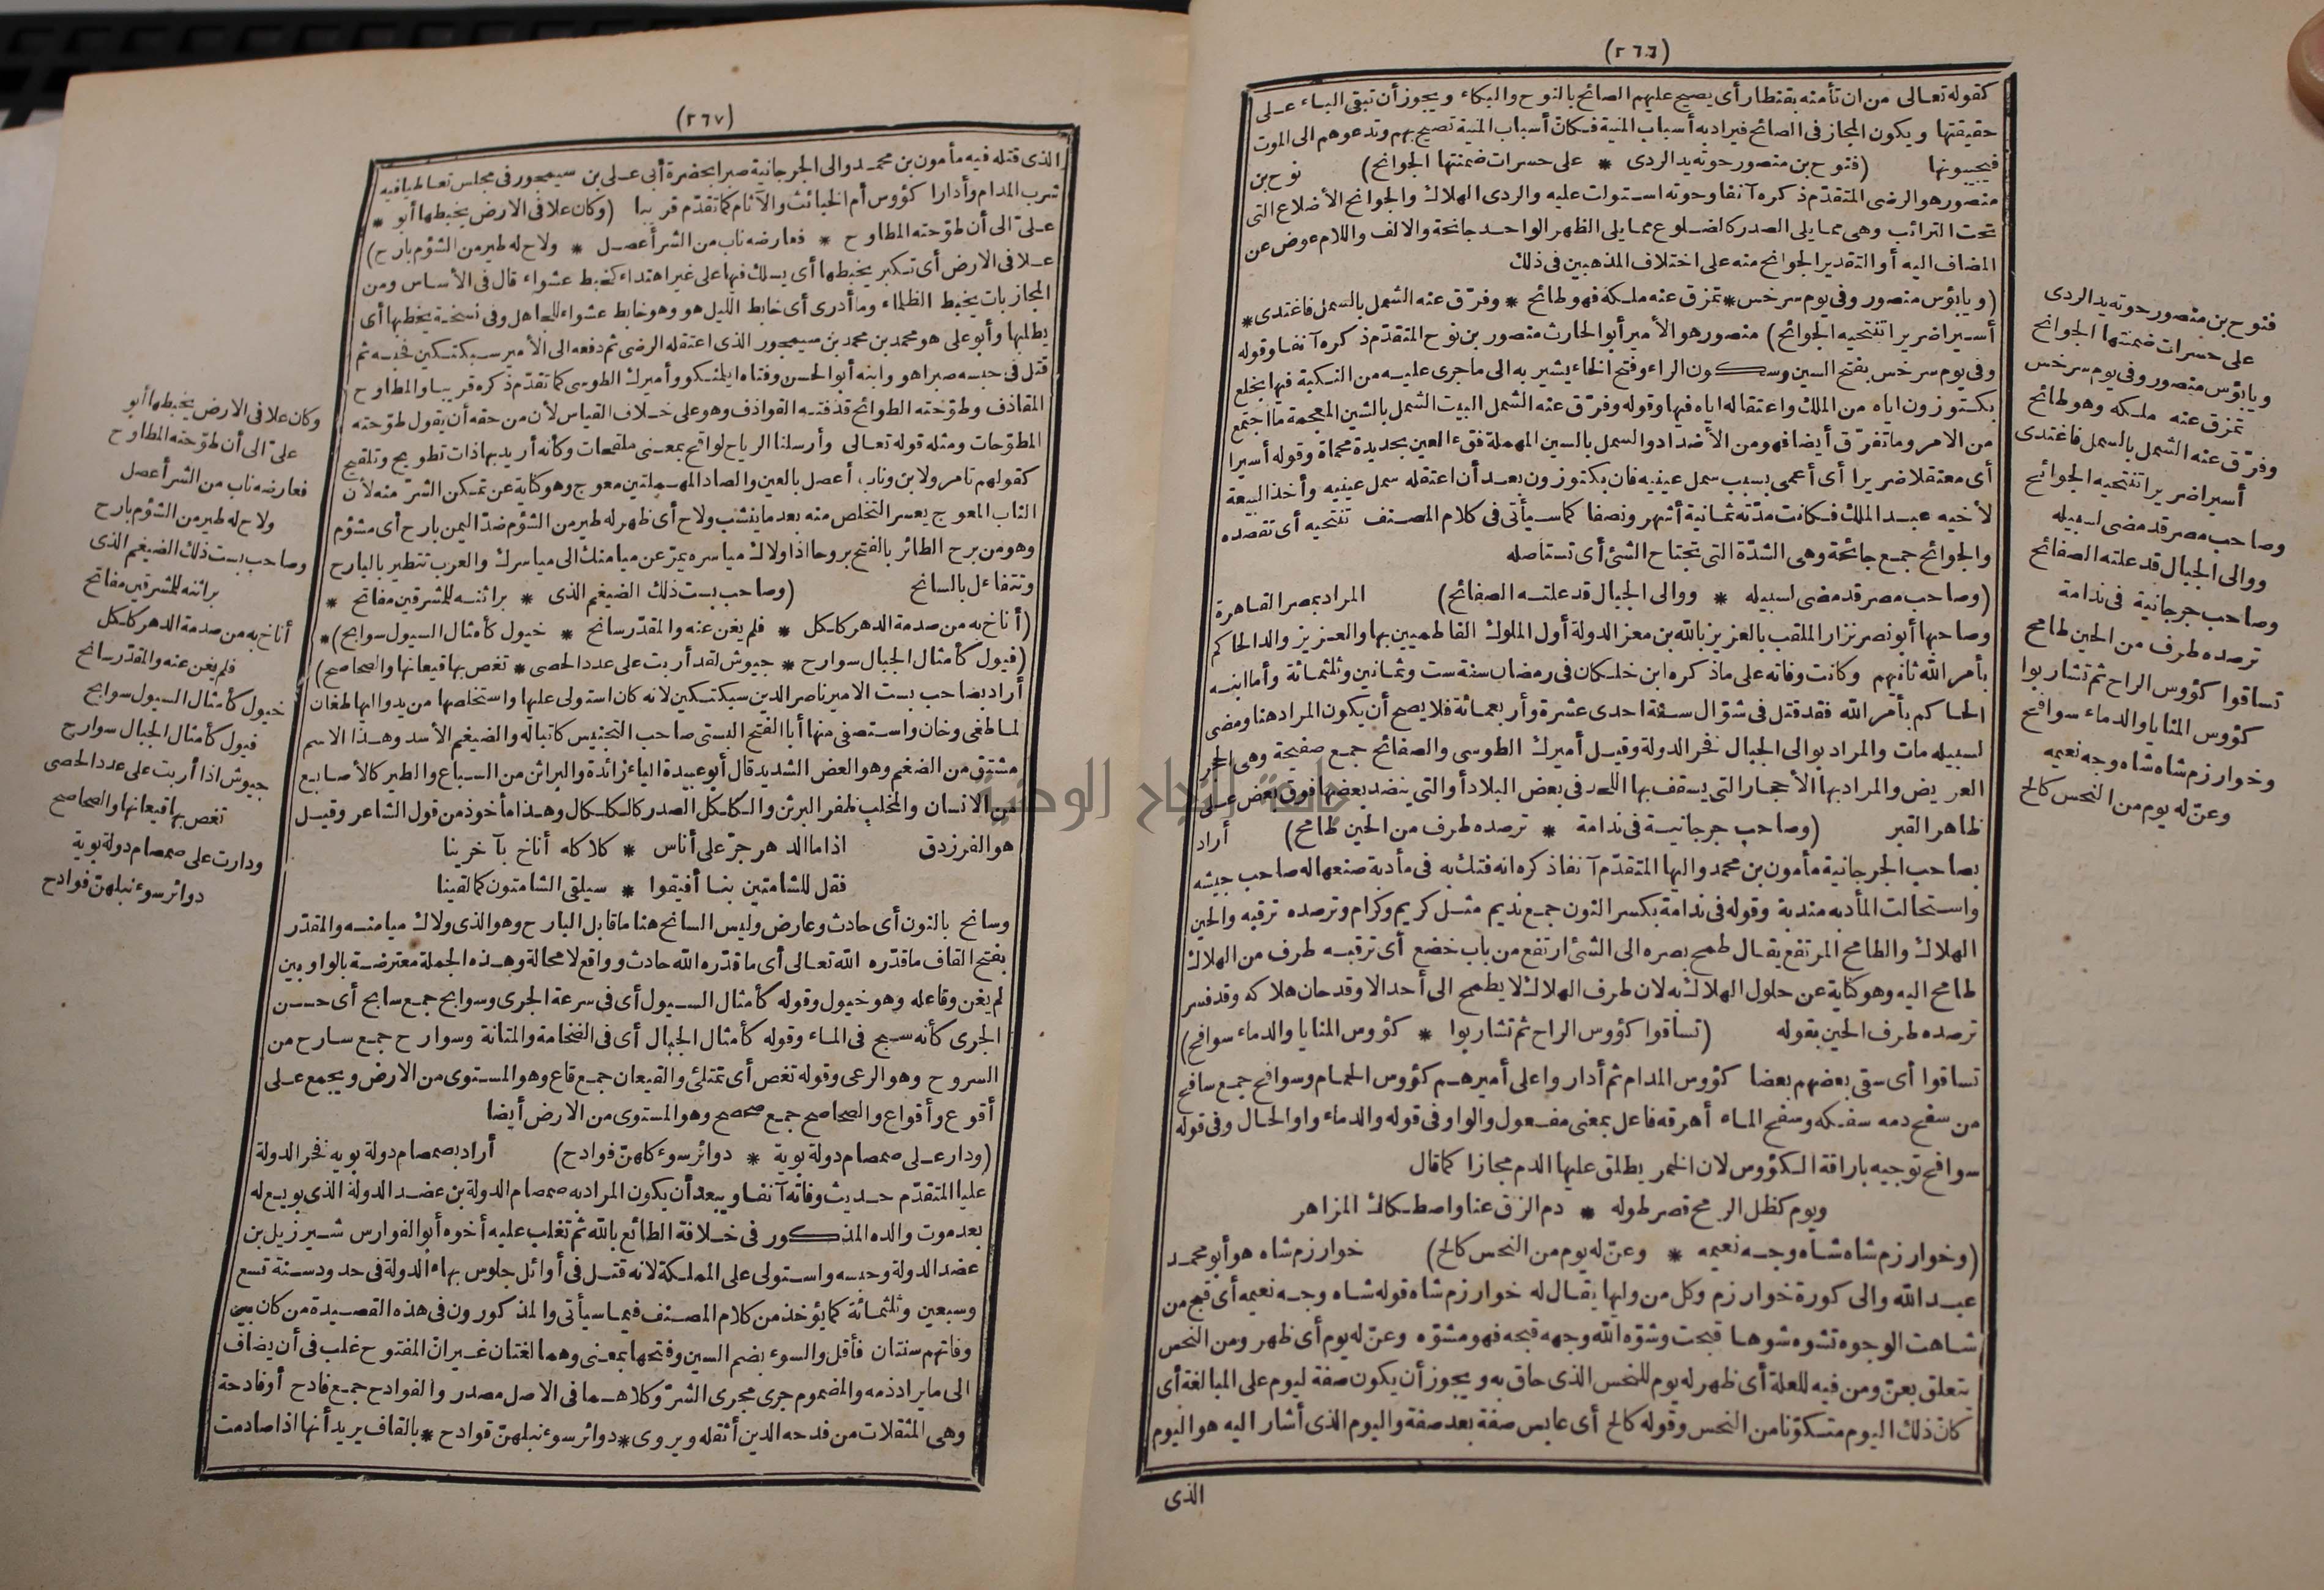 (٢٦٦)
كقوله تعالى من ان تأمنه بقنطار أى يصيح عليهم الصائح بالنوح والبكاء ويجوز أن تبقى الباء على
حقيقتها ويكون المجاز فى الصائح فيراد به أسباب المنية فكانّ أسباب المنية تصيح بهم وتدعوهم الى الموت
فيجيبونها (فنوح بن منصور حوته يد الردى * على حسرات ضمنتها الجوانح) نوح بن
منصور هو الرضى المتقدّم ذكره آنفا وحوته استولت عليه والردى الهلاك والجوانح الأضلاع التى
تحت الترائب وهى مما يلى الصدر كالضلوع مما يلى الظهر الواحد جانحة والالف واللام عوض عن
المضاف اليه أو التقدير الجوانح منه على اختلاف المذهبين فى ذلك
(ويابؤس منصور وفى يوم سرخس * تمزق عنه ملكه فهو طائح * وفرّق عنه الشمل بالسمل فاغتدى *
أسيرا ضريرا تنتحيه الجوائح) منصور هو الأمير أبو الحارث منصور بن نوح المتقدّم ذكره آنفا وقوله
وفى يوم سرخس بفتح السين وسكون الراء وفتح الخاء يشير به الى ما جرى عليه من النكبة فيها بخلع
بكتوزون اياه من الملك واعتقاله اياه فيها وقوله وفرّق عنه الشمل البيت الشمل بالشين المعجمة ما اجتمع
من الامر وما تفرّق أيضا فهو من الأضداد والسمل بالسين المهملة فقء العين بحديدة محماة وقوله أسيرا
أى معتقلا ضريرا أى أعمى بسبب سمل عينيه فان بكتوزون بعد أن اعتقله سمل عينيه وأخذ البيعة
لأخيه عبد الملك فكانت مدّته ثمانية أشهر ونصفا كما سيأتى فى كلام المصنف تنتحيه أى تقصده
والجوائح جمع جائحة وهى الشدّة التى تجتاح الشئ أى تستأصله
(وصاحب مصر قد مضى لسبيله * ووالى الجبال قد علته الصفائح) المراد بمصر القاهرة
وصاحبها أبو نصر نزار الملقب بالعزيز بالله بن معز الدولة أول الملوك الفاطميين بها والعزيز والد الحاكم
بأمر الله ثانيهم وكانت وفاته على ما ذكره ابن خلكان فى رمضان سنة ست وثمانين وثلثمائة وأما ابنه
الحاكم بأمر الله فقد قتل فى شوّال سنة احدى عشرة وأربعمائة فلا يصح أن يكون المراد هنا ومضى
لسبيله مات والمراد بوالى الجبال فخر الدولة وقيل أميرك الطوسى والصفائح جمع صفيحة وهى الحجر
العريض والمراد بها الأحجار التى يسقف بها اللحد فى بعض البلاد أو التى ينضد بعضها فوق بعض على
ظاهر القبر (وصاحب جرجانية فى ندامة * ترصده طرف من الحين طامح) أراد
بصاحب الجرجانية مأمون بن محمد واليها المتقدّم آنفا ذكره انه فتك به فى مأدبة صنعها له صاحب جيشه
واستحالت المأدبه مندبة وقوله فى ندامة بكسر النون جمع نديم مثل كريم وكرام وترصده ترقبه والحين
الهلاك والطامح المرتفع يقال طمح بصره الى الشئ ارتفع من باب خضع أى ترقبه طرف من الهلاك
طامح اليه وهو كناية عن حلول الهلاك به لان طرف الهلاك لا يطمح الى أحد الا وقد حان هلاكه وقد فسر
ترصده طرف الحين بقوله (تساقوا كؤوس الراح ثم تشاربوا * كؤوس المنايا والدماء سوافح)
تساقوا أى سقى بعضهم بعضا كؤوس المدام ثم أداروا على أميرهم كؤوس الحمام وسوافح جمع سافح
من سفح دمه سفكه وسفح الماء أهرقه فاعل بمعنى مفعول والواو فى قوله والدماء واو الحال وفى قوله
سوافح توجيه باراقة الكؤوس لان الخمر يطلق عليها الدم مجازا كما قال
ويوم كظل الرمح قصر طوله * دم الزق عنا واصطكاك المزاهر
(وخوارزم شاه شاه وجه نعيمه * وعنّ له يوم من النحس كالح) خوارزم شاه هو أبو محمد
عبد الله والى كورة خوارزم وكل من وليها يقال له خوارزم شاه قوله شاه وجه نعيمه أى قبح من
شاهت الوجوه تشوه شوها قبحت وشوّه الله وجهه قبحه فهو مشوّه وعنّ له يوم أى ظهر ومن النحس
يتعلق بعنّ ومن فيه للعلة أى ظهر له يوم للنحس الذى حاق به ويجوز أن يكون صفة ليوم على المبالغة أى
كانّ ذلك اليوم متكوّنا من النحس وقوله كالح أى عابس صفة بعد صفة واليوم الذى أشار اليه هو اليوم
الذى
فنوح بن منصور حوته يد الردى
على حسرات ضمنتها الجوانح
ويابؤس منصور وفى يوم سرخس
تمزق عنه ملكه وهو طائح
وفرّق عنه الشمل بالسمل فاغتدى
أسيرا ضريرا تنتحيه الجوائح
وصاحب مصر قد مضى لسبيله
ووالى الجبال قد علته الصفائح
وصاحب جرجانية فى ندامة
ترصده طرف من الحين طامح
تساقوا كؤوس الراح ثم تشاربوا
كؤوس المنايا والدماء سوافح
وخوارزم شاه شاه وجه نعيمه
وعنّ له يوم من النحس كالح
(٢٦٧)
الذى قتله فيه مأمون بن محمد والى الجرجانية صبرا بحضرة أبى على بن سيمجور فى مجلس تعاطيا فيه
شرب المدام وأدارا كؤوس أم الخبائث والآثام كما تقدّم قريبا (وكان علا فى الارض يخبطها أبو *
علىّ الى أن طوّحته المطاوح * فعارضه ناب من الشر أعصل * ولاح له طير من الشؤم بارح)
علا فى الارض أى تكبر يخبطها أى يسلك فيها على غير اهتداء كخبط عشواء قال فى الأساس ومن
المجاز بات يخبط الظلماء وما أدرى أى خابط الليل هو وهو خابط عشواء للجاهل وفى نسخة يخطبها أى
يطلبها وأبو على هو محمد بن محمد بن سيمجور الذى اعتقله الرضى ثم دفعه الى الأمير سبكتكين فحبسه ثم
قتل فى حبسه صبرا هو وابنه أبو الحسن وفتاه ايلمنكو وأميرك الطوسى كما تقدّم ذكره قريبا والمطاوح
المقاذف وطوّحته الطوائح قذفته القواذف وهو على خلاف القياس لأن من حقه أن يقول طوّحته
المطوّحات ومثله قوله تعالى وأرسلنا الرياح لواقح بمعنى ملقحات وكأنه أريد بها ذات تطويح وتلقيح
كقولهم تامر ولابن وناب أعصل بالعين والصاد المهملتين معوج وهو كناية عن تمكن الشرّ منه لأن
الناب المعوج يعسر التخلص منه بعد ما ينشب ولاح أى ظهر له طير من الشؤم ضدّ اليمن بارح أى مشؤم
وهو من برح الطائر بالفتح بروحا اذا ولاك مياسره يمرّ عن ميامنك الى مياسرك والعرب تتطير بالبارح
وتتفاءل بالسانح (وصاحب بست ذلك الضيغم الذى * براثنه للمشرقين مفاتح *
(أناخ به من صدمة الدهر كلكل * فلم يغن عنه والمقدّر سانح * خيول كأمثال السيول سوابح) *
(فيول كأمثال الجبال سوارح * جيوش لقد أربت على عدد الحصى * تغص بها قيعانها والصحاصح)
أراد بصاحب بست الامير ناصر الدين سبكتكين لانه كان استولى عليها واستخلصها من يد واليها طغان
لما طغى وخان واستصفى منها أبا الفتح البستى صاحب التجنيس كاتبا له والضيغم الأسد وهذا الاسم
مشتق من الضغم وهو العض الشديد قال أبو عبيدة الياء زائدة والبراثن من السباع والطير كالأصابع
من الانسان والمخلب ظفر البرثن والكلكل الصدر كالكلكال وهذا مأخوذ من قول الشاعر وقيل
هو الفرزدق اذا ما الدهر جرّ على أناس * كلاكله أناخ بآخرينا
فقل للشامتين بنا أفيقوا * سيلقى الشامتون كما لقينا
وسانح بالنون أى حادث وعارض وليس السانح هنا ما قابل البارح وهو الذى ولاك ميامنه والمقدّر
بفتح القاف ما قدّره الله تعالى أى ما قدّره الله حادث وواقع لا محالة وهذه الجملة معترضة بالواو بين
لم يغن وفاعله وهو خيول وقوله كأمثال السيول أى فى سرعة الجرى وسوابح جمع سابح أى حسن
الجرى كأنه سبح فى الماء وقوله كأمثال الجبال أى فى الضخامة والمتانة وسوارح جمع سارح من
السروح وهو الرعى وقوله تغص أى تمتلئ والقيعان جمع قاع وهو المستوى من الارض ويجمع على
أقوع وأقواع والصحاصح جمع صحصح وهو المستوى من الارض أيضا
(ودار على صمصام دولة بوية * دوائر سوء كلهنّ فوادح) أراد بصمصام دولة بويه فخر الدولة
عليا المتقدّم حديث وفاته آنفا ويبعد أن يكون المراد به صمصام الدولة بن عضد الدولة الذى بويع له
بعد موت والده المذكور فى خلافة الطائع بالله ثم تغلب عليه أخوه أبو الفوارس شيرزيل بن
عضد الدولة وحبسه واستولى على المملكة لانه قتل فى أوائل جلوس بهاء الدولة فى حدود سنة تسع
وسبعين وثلثمائة كما يؤخذ من كلام المصنف فيما سيأتى والمذكورون فى هذه القصيدة من كان بين
وفاتهم سنتان فأقل والسوء بضم السين وفتحها بمعنى وهما لغتان غير ان المفتوح غلب فى أن يضاف
الى ما يراد ذمه والمضموم جرى مجرى الشرّ وكلاهما فى الاصل مصدر والفوادح جمع فادح أو فادحة
وهى المثقلات من فدحه الدين أثقله ويروى * دوائر سوء نبلهنّ قوادح * بالقاف يريد أنها اذا صادمت
وكان علا فى الارض يخبطها أبو
علىّ الى أن طوّحته المطاوح
فعارضه ناب من الشر أعصل
ولاح له طير من الشؤم بارح
وصاحب بست ذلك الضيغم الذى
براثنه للمشرقين مفاتح
أناخ به من صدمة الدهر كلكل
فلم يغن عنه والمقدّر سانح
خيول كأمثال السيول سوابح
فيول كأمثال الجبال سوارح
جيوش اذا أربت على عدد الحصى
تغص بها قيعانها والصحاصح
ودارت على صمصام دولة بوية
دوائر سوء نبلهنّ فوادح
جامعة النجاح الوطنية